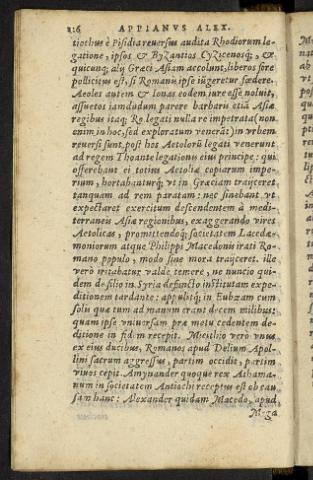 216 APPIANVS ALEX.
tiochus è Pisidia reuersus audita Rhodiorum le-
gatione, ipsos & Byzantios Cyzicenosq́;, &
quicunq; alij Græci Asiam accolunt, liberos fore
pollicitus est, si Romanis ipse iũgeretur fœdere.
Aeoles autem & Ionas eodem iure esse noluit,
assuetos iamdudum parere barbaris etiã Asiæ
regibus itaq; Ro. legati nulla re impetrata (non
enim in hoc, sed exploratum venerãt) in vrbem
reuersi sunt. post hos Aetolorũ legati venerunt
ad regem Thoante legationis eius principe: qui
offerebant ei totius Aetoliæ copiarum impe-
rium, hortabanturq́; vt in Græciam traijceret
tanquam ad rem paratam: nec sinebant vt
expectaret exercitum descendentem à medi-
terraneis Asiæ regionibus, exaggerando vires
Aetolicas, promittendoq́; societatem Lacedæ-
moniorum atque Philippi Macedonis irati Ro-
mano populo, modo sine mora traijceret. ille
verò irritabatur valde temere, ne nuncio qui-
dem de filio in Syria defuncto institutam expe-
ditionem tardante: appulitq́; in Eubœam cum
solis quæ tum ad manum erant decem milibus:
quam ipse vniuersam præ metu cedentem de-
ditione in fidem recepit. Micithio verò vnus
ex eius ducibus, Romanos apud Delium Apol-
lini sacrum aggressus, partim occidit, partim
viuos cepit. Amynander quoque rex Athama-
num in societatem Antiochi receptus est ob cau
sam hanc: Alexander quidam Macedo, apud
Mega